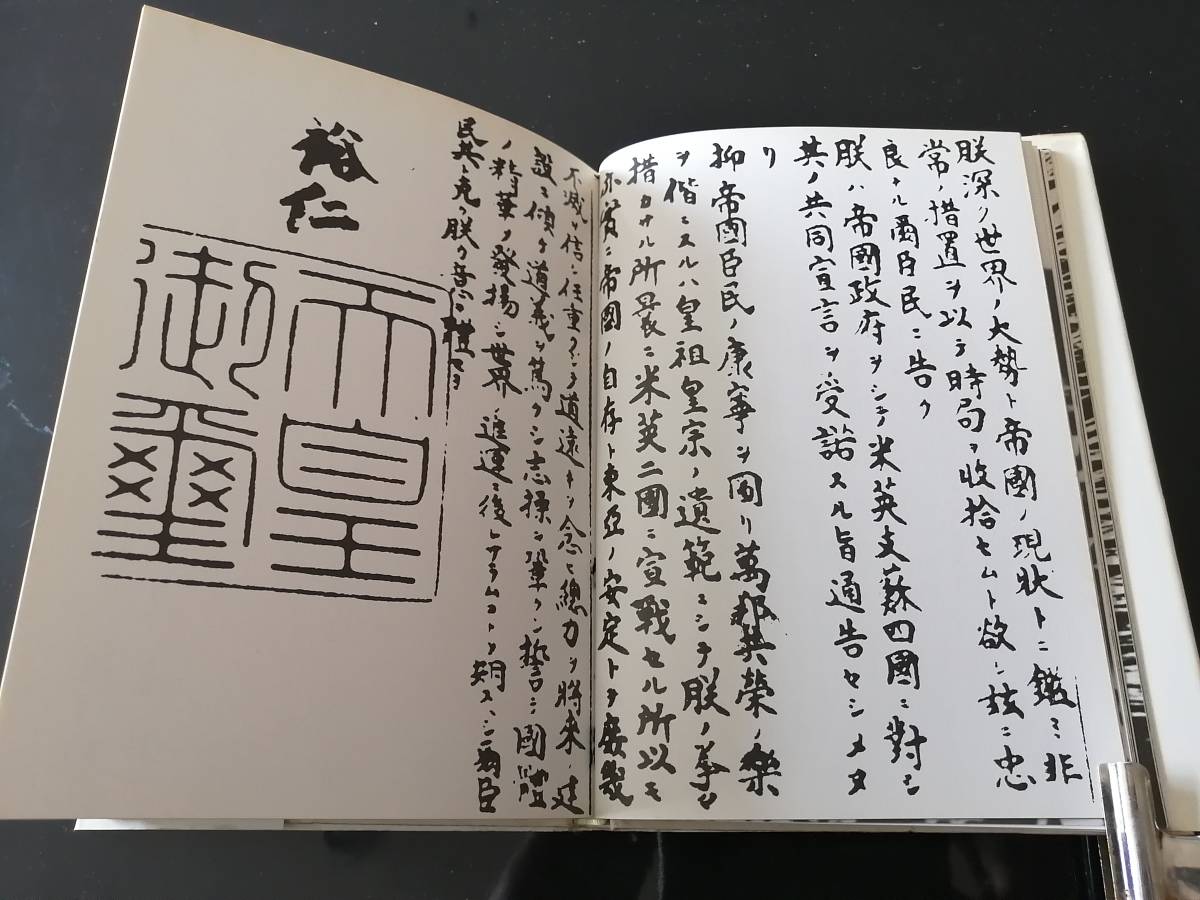 朕深ク世界ノ大勢ト帝國ノ現狀トニ鑑ミ非
常ノ措置ヲ以テ時局ヲ收拾セムト欲シ茲ニ忠
良ナル爾臣民ニ告ク
朕ハ帝國政府ヲシテ米英支蘇四國ニ對シ
其ノ共同宣言ヲ受諾スル旨通告セシメタ
リ
抑帝國臣民ノ康寧ヲ圖リ萬邦共榮ノ樂
ヲ偕ニスルハ皇祖皇宗ノ遺範ニシテ朕ノ拳々
措カサル所曩ニ米英二國ニ宣戰セル所以モ
亦實ニ帝國ノ自存ト東亞ノ安定トヲ庶幾
不滅ヲ信シ任重クシテ道遠キヲ念ヒ總力ヲ將來ノ建
設ニ傾ケ道義ヲ篤クシ志操ヲ鞏クシ誓テ國體
ノ精華ヲ發揚シ世界ノ進運ニ後レサラムコトヲ期スヘシ爾臣
民其レ克ク朕カ意ヲ體セヨ
裕仁
天皇
御璽